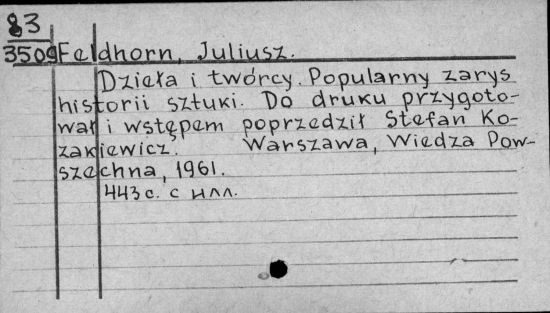 83
3509 Feldhorn, Juliusz.
Dzieła i twórcy. Popularny zarys
historii sztuki. Do druku przygoto-
wał i wstępem poprzedził Stefan Ko-
zakiewicz. Warszawa, Wiedza Pow-
szechna, 1961.
443 с. с илл.